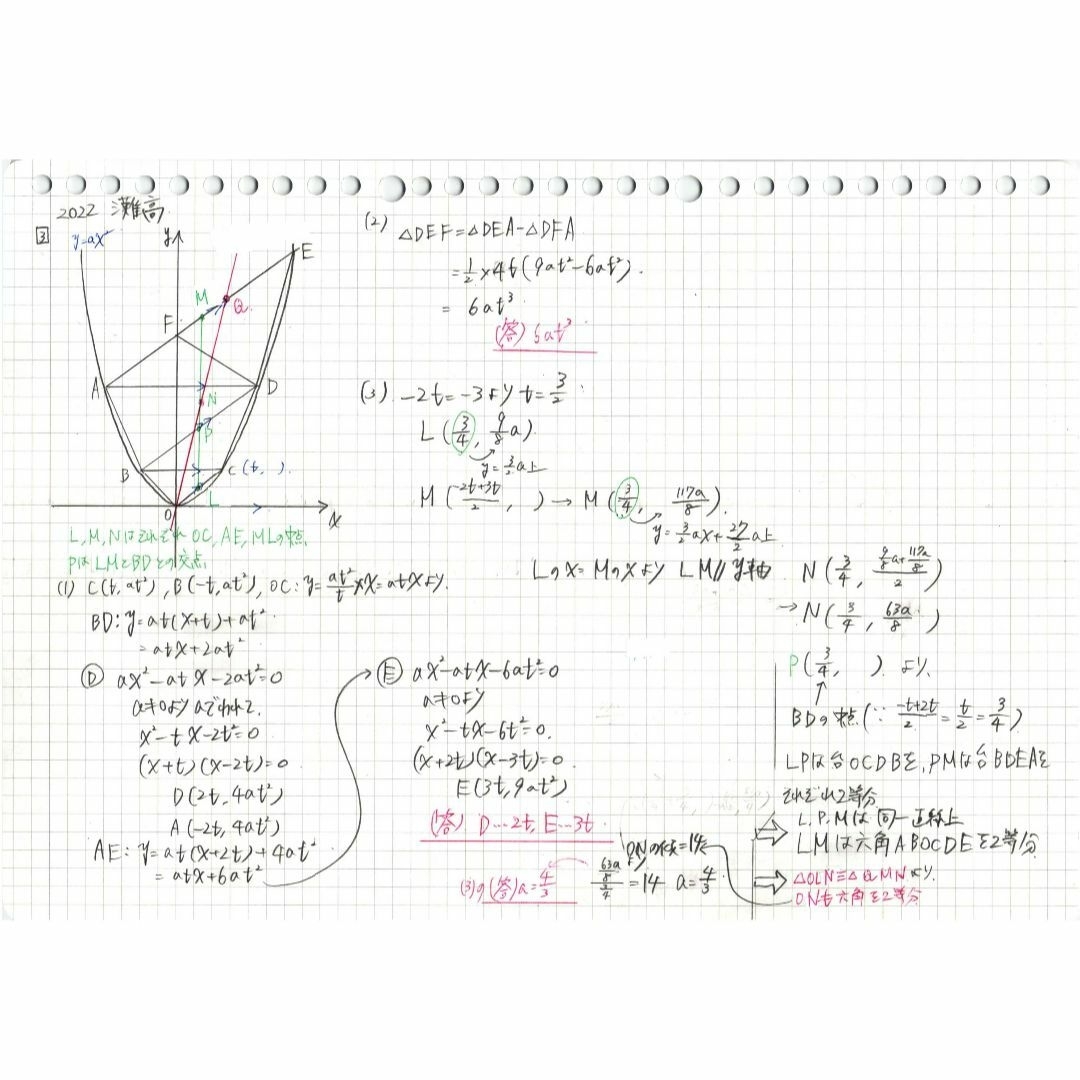 2022 灘高
3
y=ax²
y
E
M
Q
F
A
D
N
P
B
C(t, ).
L
O
x
L,M,NはそれぞれOC,AE,MLの中点.
PはLMとBDとの交点.
(1) C(t,at²), B(-t,at²), OC:y=at²/t×x=atxより.
BD:y=at(x+t)+at²
=atx+2at²
Ⓓ ax²-atx-2at²=0
a≠0よりaでわって.
x²-tx-2t²=0
(x+t)(x-2t)=0
D(2t,4at²)
A(-2t,4at²)
AE:y=at(x+2t)+4at²
=atx+6at²
Ⓔ ax²-atx-6at²=0
a≠0より
x²-tx-6t²=0.
(x+2t)(x-3t)=0
E(3t,9at²)
(答) D…2t, E…3t
(2) △DEF=△DEA-△DFA
=1/2×4t(9at²-6at²).
= 6at³
(答) 6at³
(3). -2t=-3よりt=3/2
L(3/4, 9/8a).
y=3/2a上
M(-2t+3t/2, )→M(3/4, 117a/8).
y=3/2ax+27/2a上
Lのx=MのxよりLM//y軸
N(3/4, 9/8a+117a/8/2)
→N(3/4, 63a/8)
P(3/4, ). より.
↑
BDの中点(∵ -t+2t/2=t/2=3/4)
LPは台OCDBを,PMは台BDEAを
それぞれ2等分
L.P.Mは同一直線上
⇒ LMは六角ABOCDEを2等分
⇒ △OLN≡△QMNより.
ONも六角を2等分
ONの傾=14
63a/8/3/4=14 a=4/3
(3)の(答) a=4/3